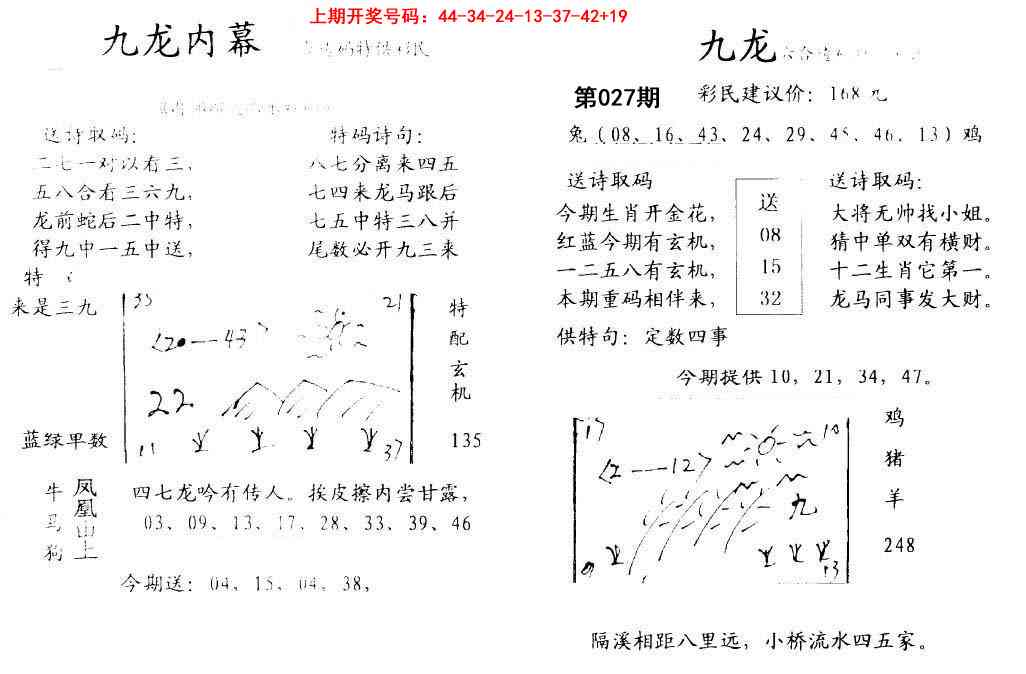 上期开奖号码：44-34-24-13-37-42+19
九龙内幕
送诗取码：
二七一对以有三，
五八合看三六九，
龙前蛇后二中特，
得九中一五中送，
特
来是三九
特码诗句：
八七分离来四五
七四来龙马跟后
七五中特三八并
尾数必开九三来
35
21
<20—43>
22
11
37
特
配
玄
机
135
蓝绿早数
牛
马
狗
凤
凰
山
上
四七龙吟有传人。挨皮擦内尝甘露，
03、09、13、17、28、33、39、46
今期送：04、15、04、38，
九龙
第027期
彩民建议价：168元
兔（08、16、43、24、29、45、46、13）鸡
送诗取码
今期生肖开金花，
红蓝今期有玄机，
一二五八有玄机，
本期重码相伴来，
送
08
15
32
送诗取码：
大将无帅找小姐。
猜中单双有横财。
十二生肖它第一。
龙马同事发大财。
供特句：定数四事
今期提供 10，21，34，47。
17
10
<2—12>
九
13
鸡
猪
羊
248
隔溪相距八里远，小桥流水四五家。